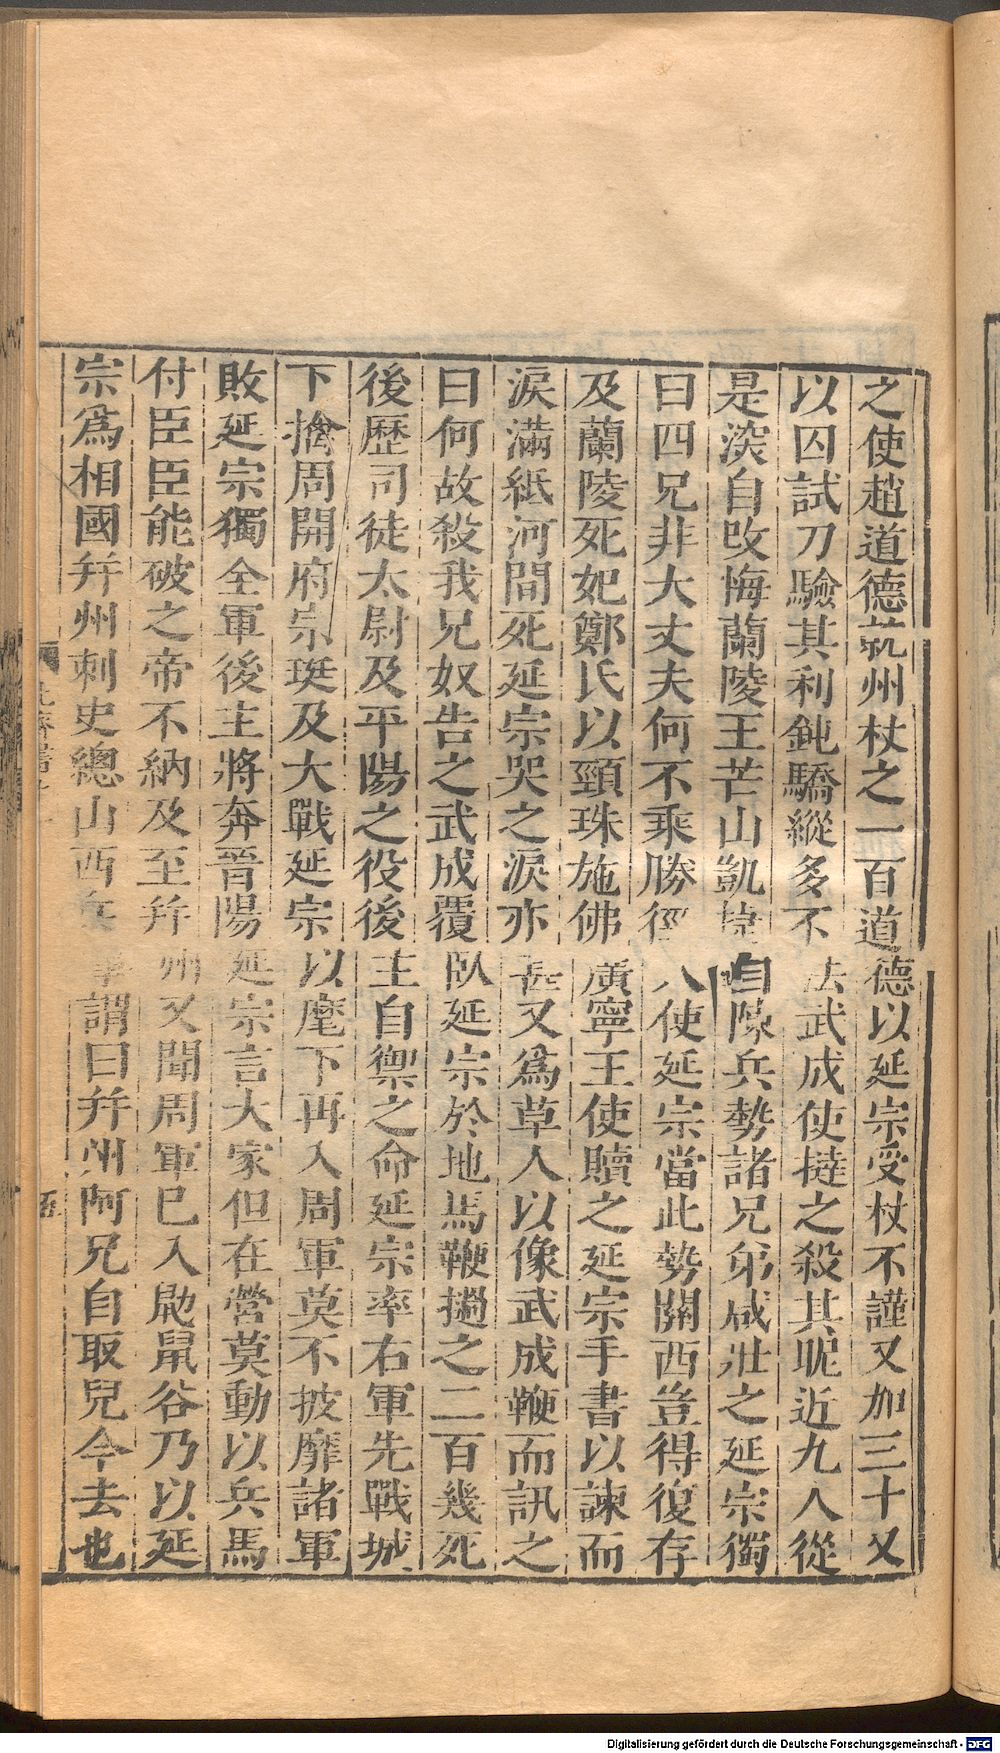 之使趙道德就州杖之一百道德以延宗受杖不謹又加三十又
以囚試刀驗其利鈍驕縱多不法武成使撻之殺其昵近九人從
是深自改悔蘭陵王芒山凱捷自陳兵勢諸兄弟咸壯之延宗獨
曰四兄非大丈夫何不乘勝徑入使延宗當此勢關西豈得復存
及蘭陵死妃鄭氏以頸珠施佛廣寧王使贖之延宗手書以諫而
淚滿紙河間死延宗哭之淚亦甚又為草人以像武成鞭而訊之
曰何故殺我兄奴告之武成覆臥延宗於地馬鞭撾之二百幾死
後歷司徒太尉及平陽之役後主自禦之命延宗率右軍先戰城
下擒周開府宗珽及大戰延宗以麾下再入周軍莫不披靡諸軍
敗延宗獨全軍後主將奔晉陽延宗言大家但在營莫動以兵馬
付臣臣能破之帝不納及至并州又聞周軍已入鼠谷乃以延
宗爲相國并州刺史總山西兵事謂曰并州阿兄自取兒今去也
五
Digitalisierung gefördert durch die Deutsche Forschungsgemeinschaft - DFG